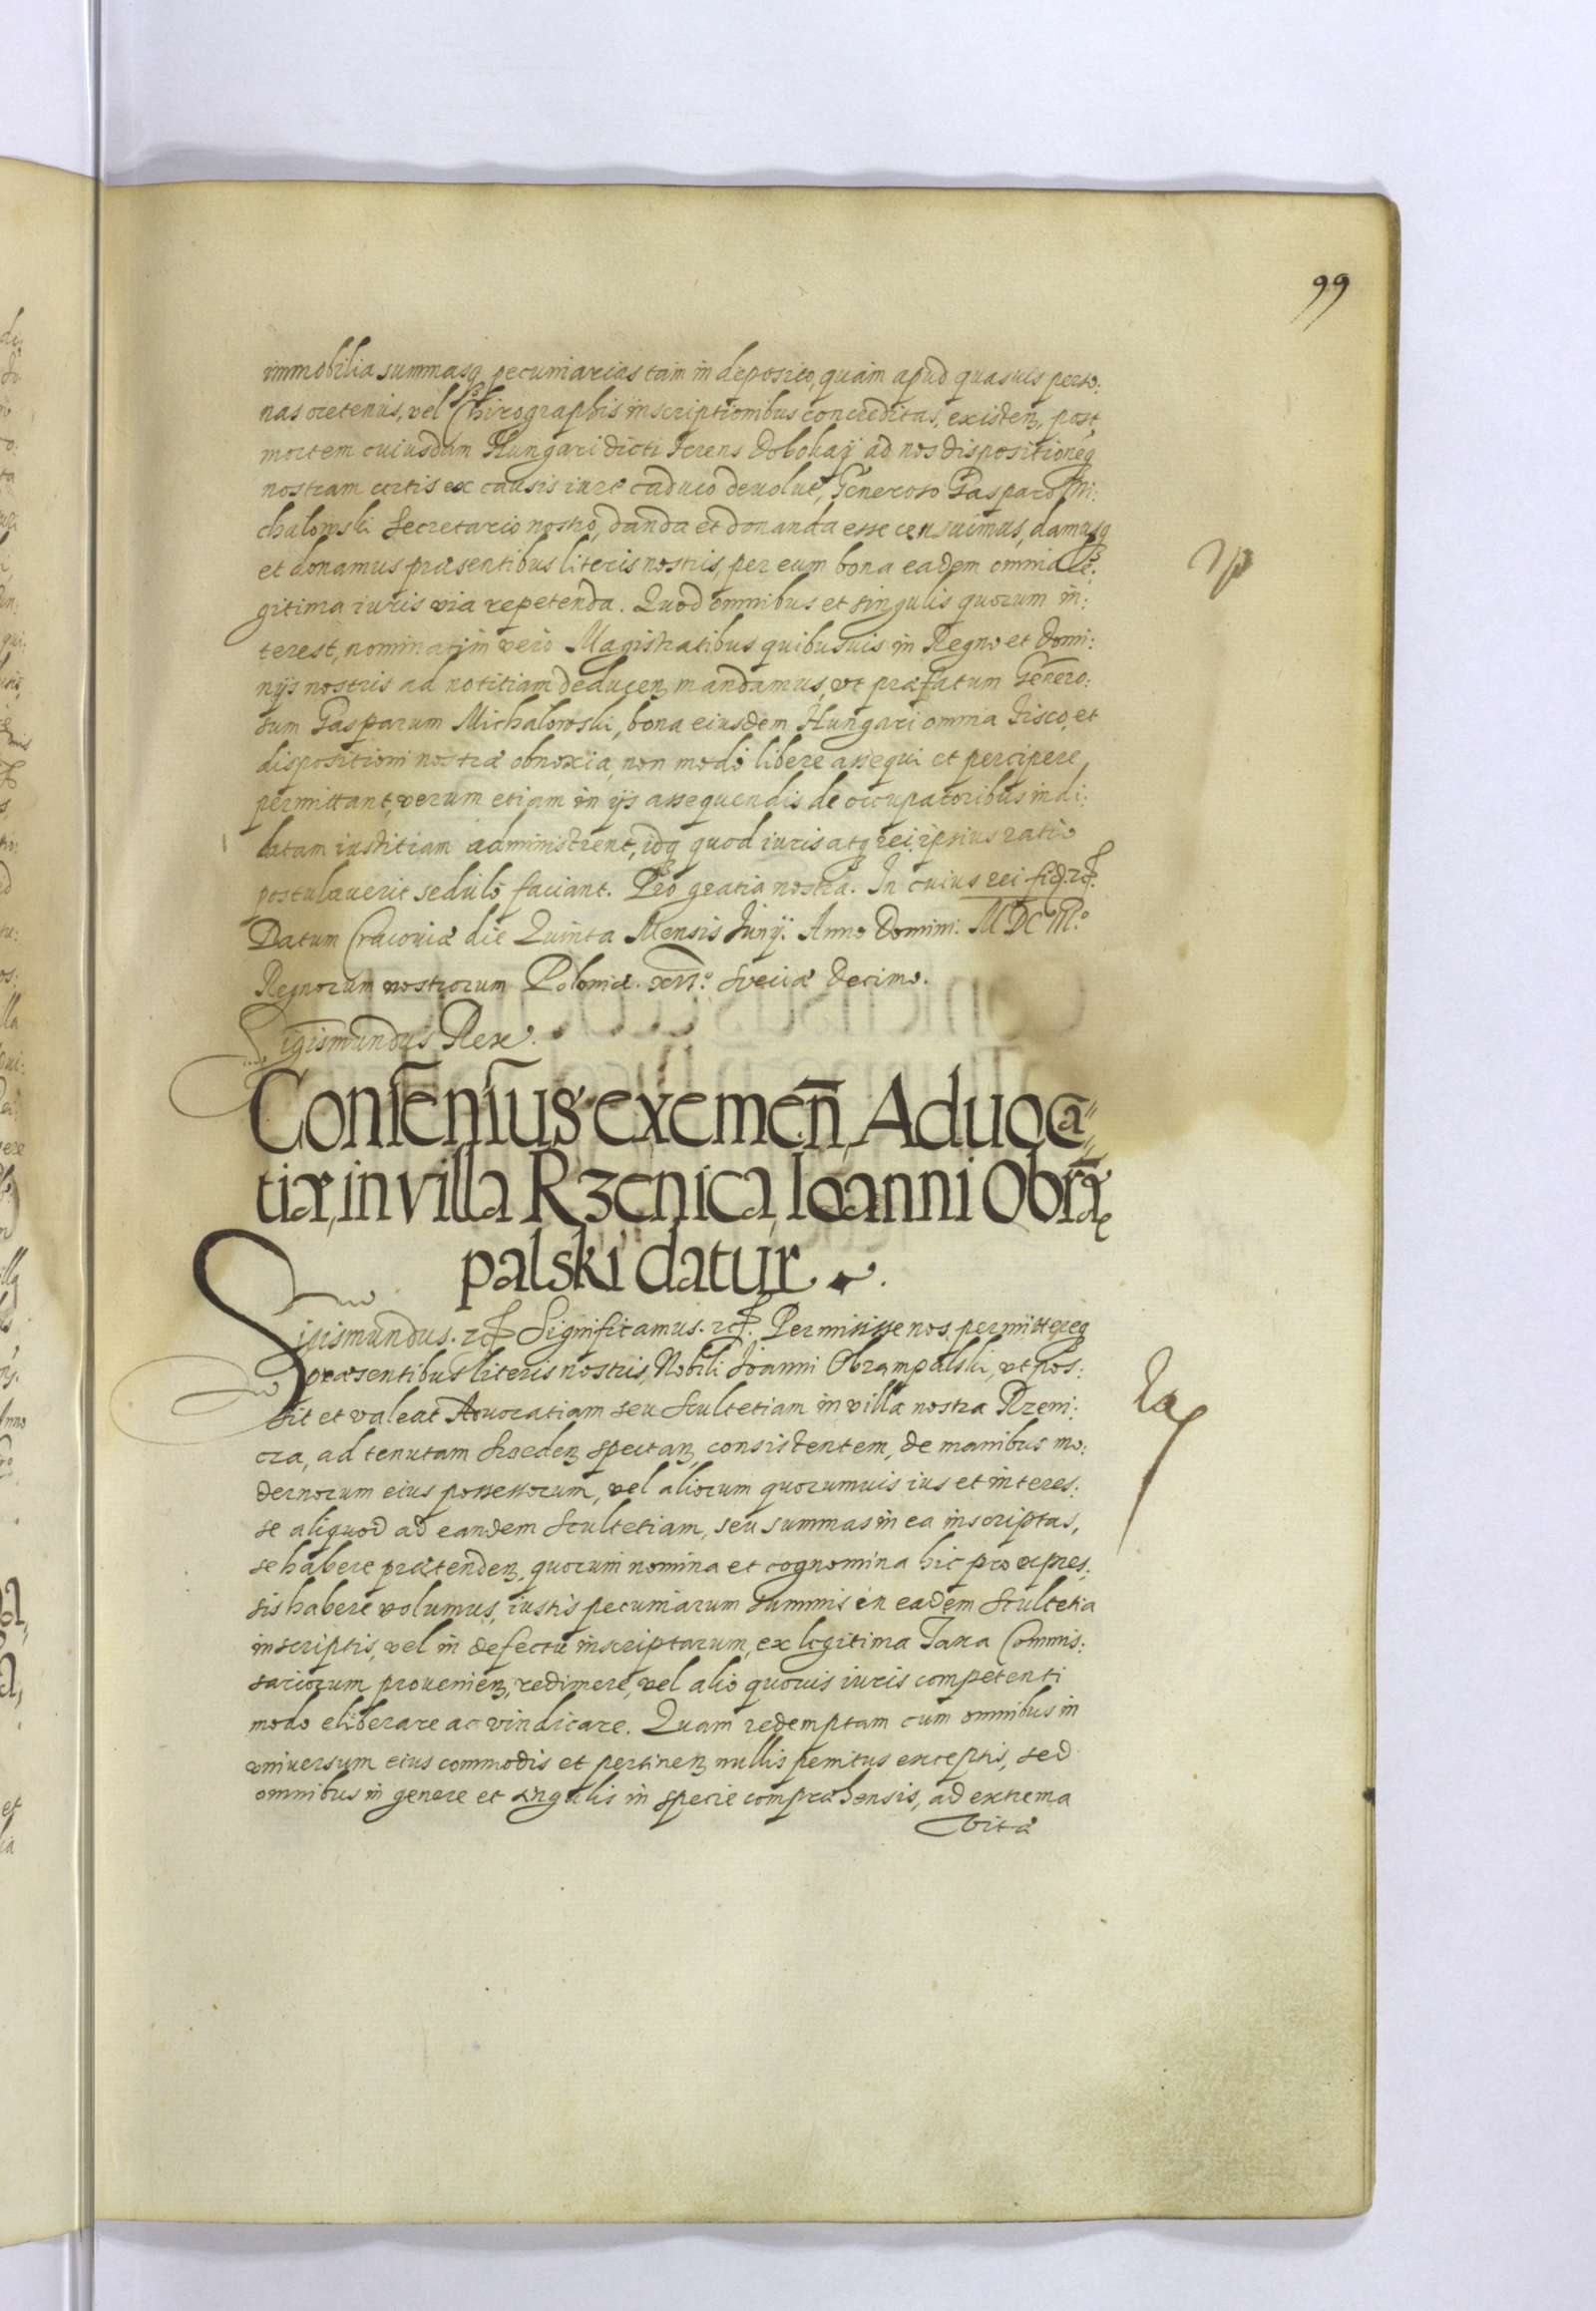 99
immobilia summasq pecuniarias tam in deposito, quam apud quasuis perso:
nas oretenus, vel Chirographis inscriptionibus concreditas, existen, post
mortem cuiusdam Hungari dicti Ferens Dobokaÿ ad nos dispositioneq
nostram certis ex causis iure caduco devolut, Generoso Gasparo Mi:
chalowski Secretario nostro, danda et donanda esse censuimus, damusq
et donamus præsentibus literis nostris, per eum bona eadem omnia le:
gitima iuris via repetenda. Quod omnibus et singulis quorum in:
terest, nominatim vero Magistratibus quibusuis in Regno et Domi:
nijs nostris ad notitiam deducen mandamus, vt præfatum Genero:
sum Gasparum Michalowski, bona eiusdem Hungari omnia Fisco, et
dispositioni nostræ obnoxia, non modo libere assequi et percipere
permittant, verum etiam in ijs assequendis de occupatoribus indi:
latam iustitiam administrent, idq quod iuris atq rei ipsius ratio
postulaverit sedulo faciant. Pro gratia nostra. In cuius rei fid. etc.
Datum Cracoviæ die Quinta Mensis Junij. Anno Domini. MDCIII.º
Regnorum nostrorum Poloniæ. XVI.º Sveciæ Decimo.
Sigismundus Rex.
Consensus exemen Aduoca
tiæ, in villa Rzenica, Ioanni Obrą
palski datur.
Sigismundus. etc. Significamus. etc. Permisisse nos, permittereq
præsentibus literis nostris, Nobili Joanni Obrampalski, vt pos:
sit et valeat Advocatiam seu Scultetiam in villa nostra Rzeni:
cza, ad tenutam spectan, consistentem, de manibus mo:
dernorum eius possessorum, vel aliorum quorumuis ius et interes:
se aliquod ad eandem Scultetiam, seu summas in ea inscriptas,
se habere prætenden, quorum nomina et cognomina hic pro expres:
sis habere volumus, iustis pecuniarum summis in eadem Scultetia
inscriptis, vel in defectu inscriptarum, ex legitima Taxa Commis:
sariorum provenien, redimere, vel alio quovis iuris competenti
modo eliberare ac vindicare. Quam redemptam cum omnibus in
vniversum eius commodis et pertinen nullis penitus exceptis, sed
omnibus in genere et singulis in specie comprahensis, ad extrema
vitæ